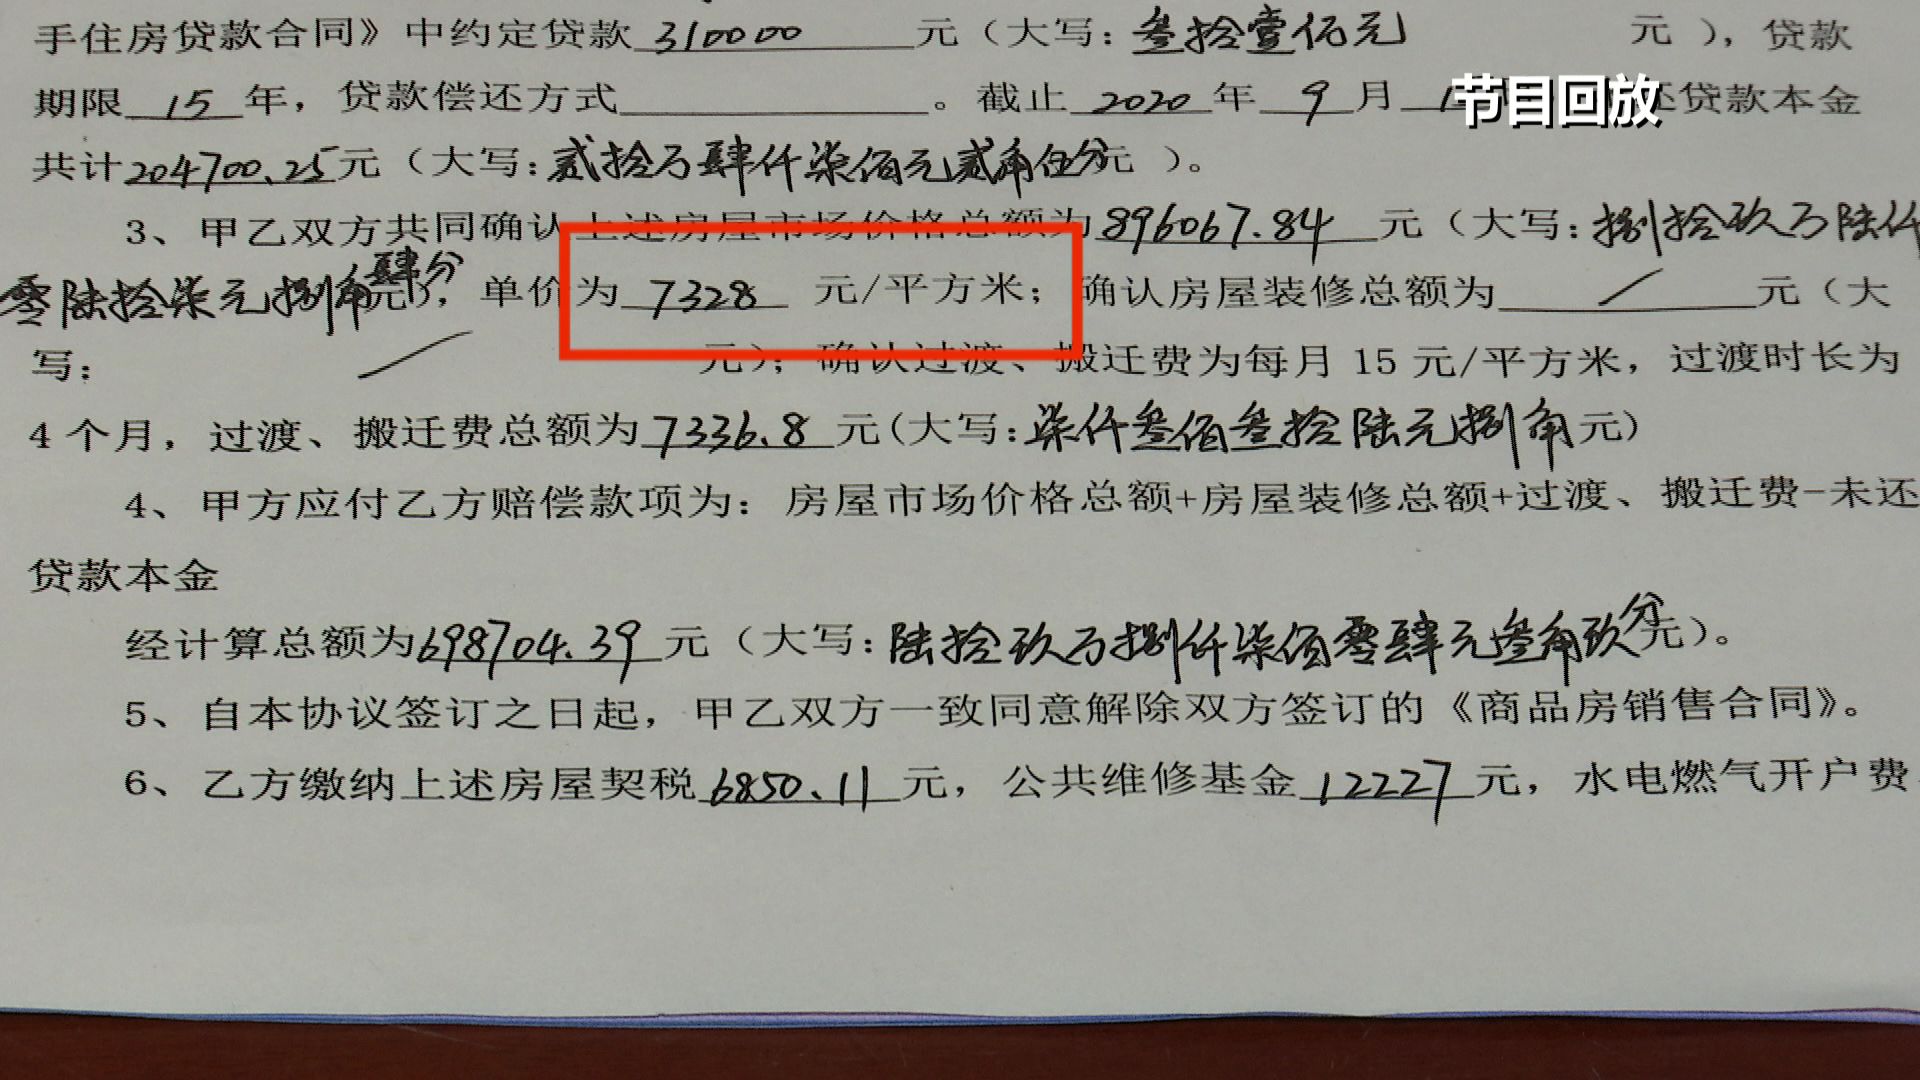 手住房贷款合同》中约定贷款 310000 元（大写：叁拾壹佰元 元），贷款
节目回放
期限 15 年，贷款偿还方式 。截止 2020 年 9 月 还贷款本金
共计204700.25元（大写：贰拾万肆仟柒佰元贰角伍分元 ）。
3、甲乙双方共同确认上述房屋市场价格总额为896067.84 元（大写：捌拾玖万陆仟
零陆拾柒元捌角肆分元），单价为 7328 元/平方米；确认房屋装修总额为 / 元（大
写： / 元）；确认过渡、搬迁费为每月 15 元/平方米，过渡时长为
4 个月，过渡、搬迁费总额为7336.8 元(大写：柒仟叁佰叁拾陆元捌角元)
4、甲方应付乙方赔偿款项为：房屋市场价格总额+房屋装修总额+过渡、搬迁费-未还
贷款本金
经计算总额为698704.39 元（大写：陆拾玖万捌仟柒佰零肆元叁角玖分元）。
5、自本协议签订之日起，甲乙双方一致同意解除双方签订的《商品房销售合同》。
6、乙方缴纳上述房屋契税6850.11 元，公共维修基金 12227 元，水电燃气开户费